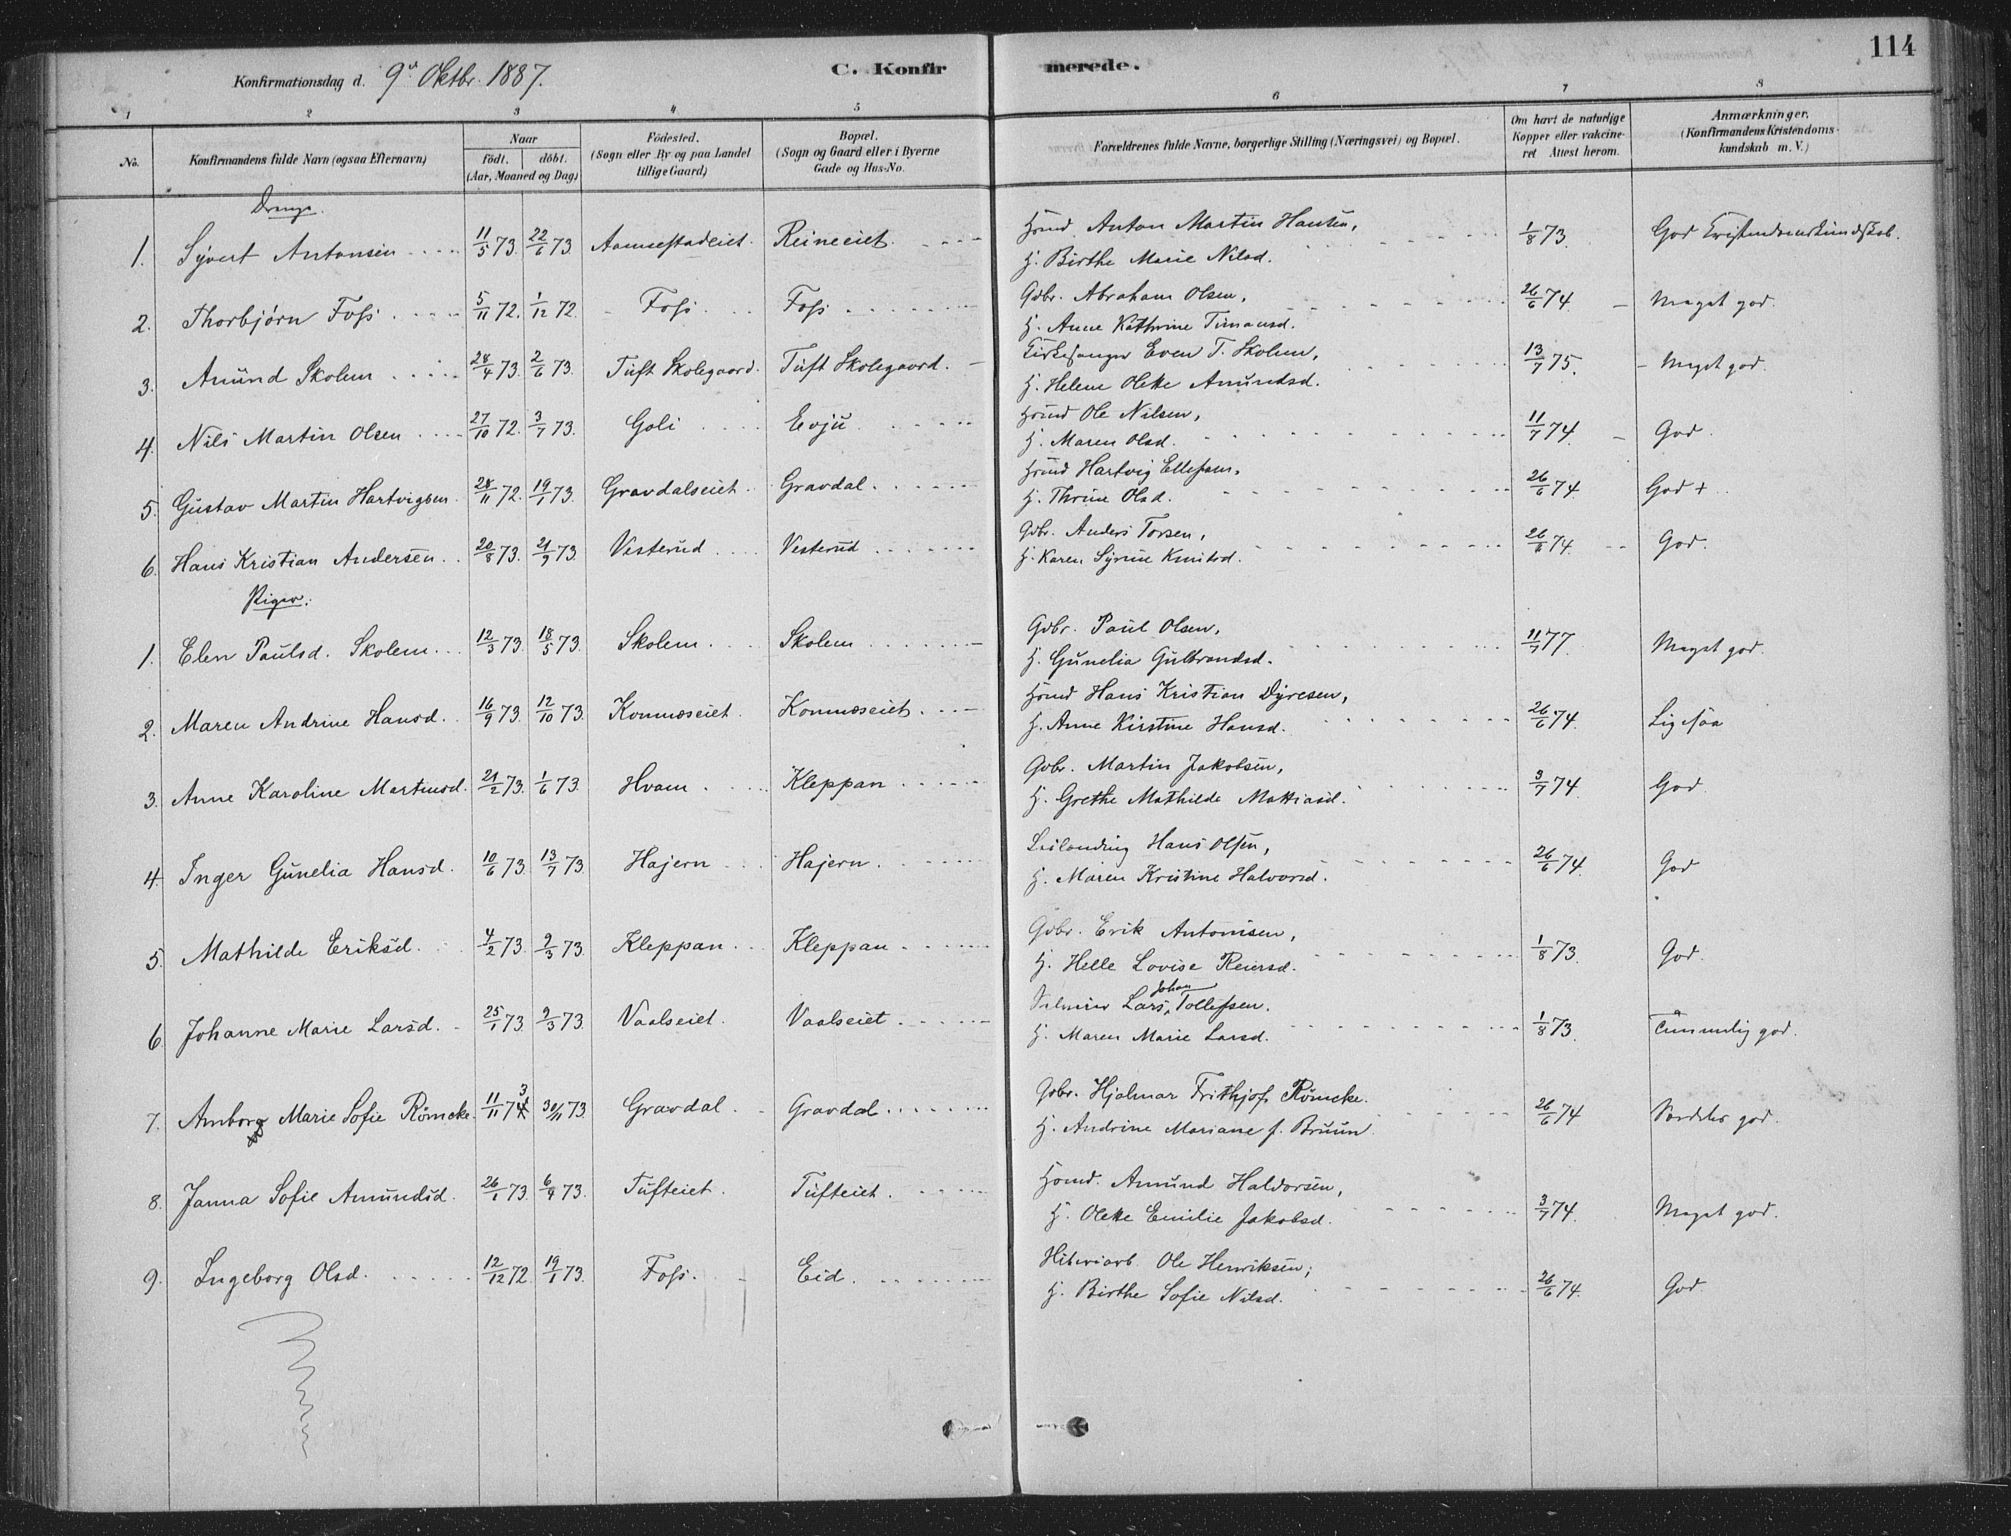 114
Konfirmationsdag d. 9de Oktbr. 1887.
C. Konfirmerede.
1 2 3 4 5 6 7 8
No.
Konfirmandens fulde Navn (ogsaa Efternavn)
Naar
födt. döbt.
(Aar, Maaned og Dag)
Födested.
(Sogn eller By og paa Landet
tillige Gaard)
Bopæl.
(Sogn og Gaard eller i Byerne
Gade og Hus-No.
Forældrenes fulde Navne, borgerlige Stilling (Næringsvei) og Bopæl.
Om havt de naturlige
Kopper eller vakcine-
ret Attest herom.
Anmærkninger.
(Konfirmandens Kristendoms-
kundskab m. V.)
Drenge.
1. Syvert Antonsen 11/5 73. 22/6 73. Aamestadeiet Reineeiet Hmd. Anton Martin Hansen, 1/8 73. God Kristendomskundskab.
H. Birthe Marie Nilsd.
2. Thorbjörn Foss 5/11 72. 1/12 72. Foss Foss Gdbr. Abraham Olsen, 26/6 74 Meget god.
H. Anne Kathrine Timansd.
3. Amund Skolem 28/4 73. 2/6 73. Tuft Skolegaard. Tuft Skolegaard. Kirkesanger Even T. Skolem, 13/7 75. Meget god.
H. Helene Oleke Amundsd.
4. Nils Martin Olsen 27/10 72. 3/7 73. Goli Evju Hmd Ole Nilsen, 11/7 74. God.
H. Maren Olsd.
5. Gustav Martin Hartvigsen 28/11 72. 19/1 73. Gravdalseiet Gravdal. Hmd Hartvig Ellefsen. 26/6 74. God +
H. Thrine Olsd.
6. Hans Kristian Andersen 20/8 73. 21/9 73 Vesterud Vesterud Gdbr. Anders Torsen, 26/6 74. God.
H. Karen Syrine Knutsd.
Piger.
1. Elen Paulsd. Skolem 12/3 73. 18/5 73. Skolem Skolem Gdbr. Paul Olsen, 11/7 77 Meget god.
H. Gunelia Gulbrandsd.
2. Maren Andrine Hansd. 16/9 73. 12/10 73. Kommeseiet Kommeseiet Hmd Hans Kristian Dyresen, 26/6 74. Ligesaa
H. Anne Kirstine Hansd.
3. Anne Karoline Martinsd. 21/2 73. 1/6 73. Hvam Kleppan Gdbr. Martin Jakobsen, 3/7 74. God.
H. Grethe Mathilde Mattiasd.
4. Inger Gunelia Hansd. 10/6 73. 13/7 73. Hajern Hajern. Leilending Hans Olsen, 26/6 74. God
H. Maren Kristine Halvorsd.
5. Mathilde Eriksd. 4/2 73. 9/3 73. Kleppan Kleppan Gdbr. Erik Antonisen, 1/8 73. God.
H. Helle Lovise Reiersd.
6. Johanne Marie Larsd. 25/1 73. 9/3 73. Vaalseiet. Vaalseiet Lars Johan Tollefsen. 1/8 73. Temmelig god.
H. Maren Marie Larsd.
7. Amborg Marie Sofie Römcke 11/11 73 30/11 73. Gravdal Gravdal Gdbr. Hjalmar Frithjof Römcke. 26/6 74 Særdeles god.
H. Andrine Mariane f. Bruun
8. Janna Sofie Amundsd. 26/1 73. 6/4 73. Tufteiet. Tufteiet. Hmd. Amund Haldorsen, 3/7 74. Meget god.
H. Oleke Emilie Jakobsd.
9. Ingeborg Olsd. 12/12 72. 19/1 73. Foss. Eid. Ole Henriksen; 26/6 74. God.
H. Birthe Sofie Nilsd.